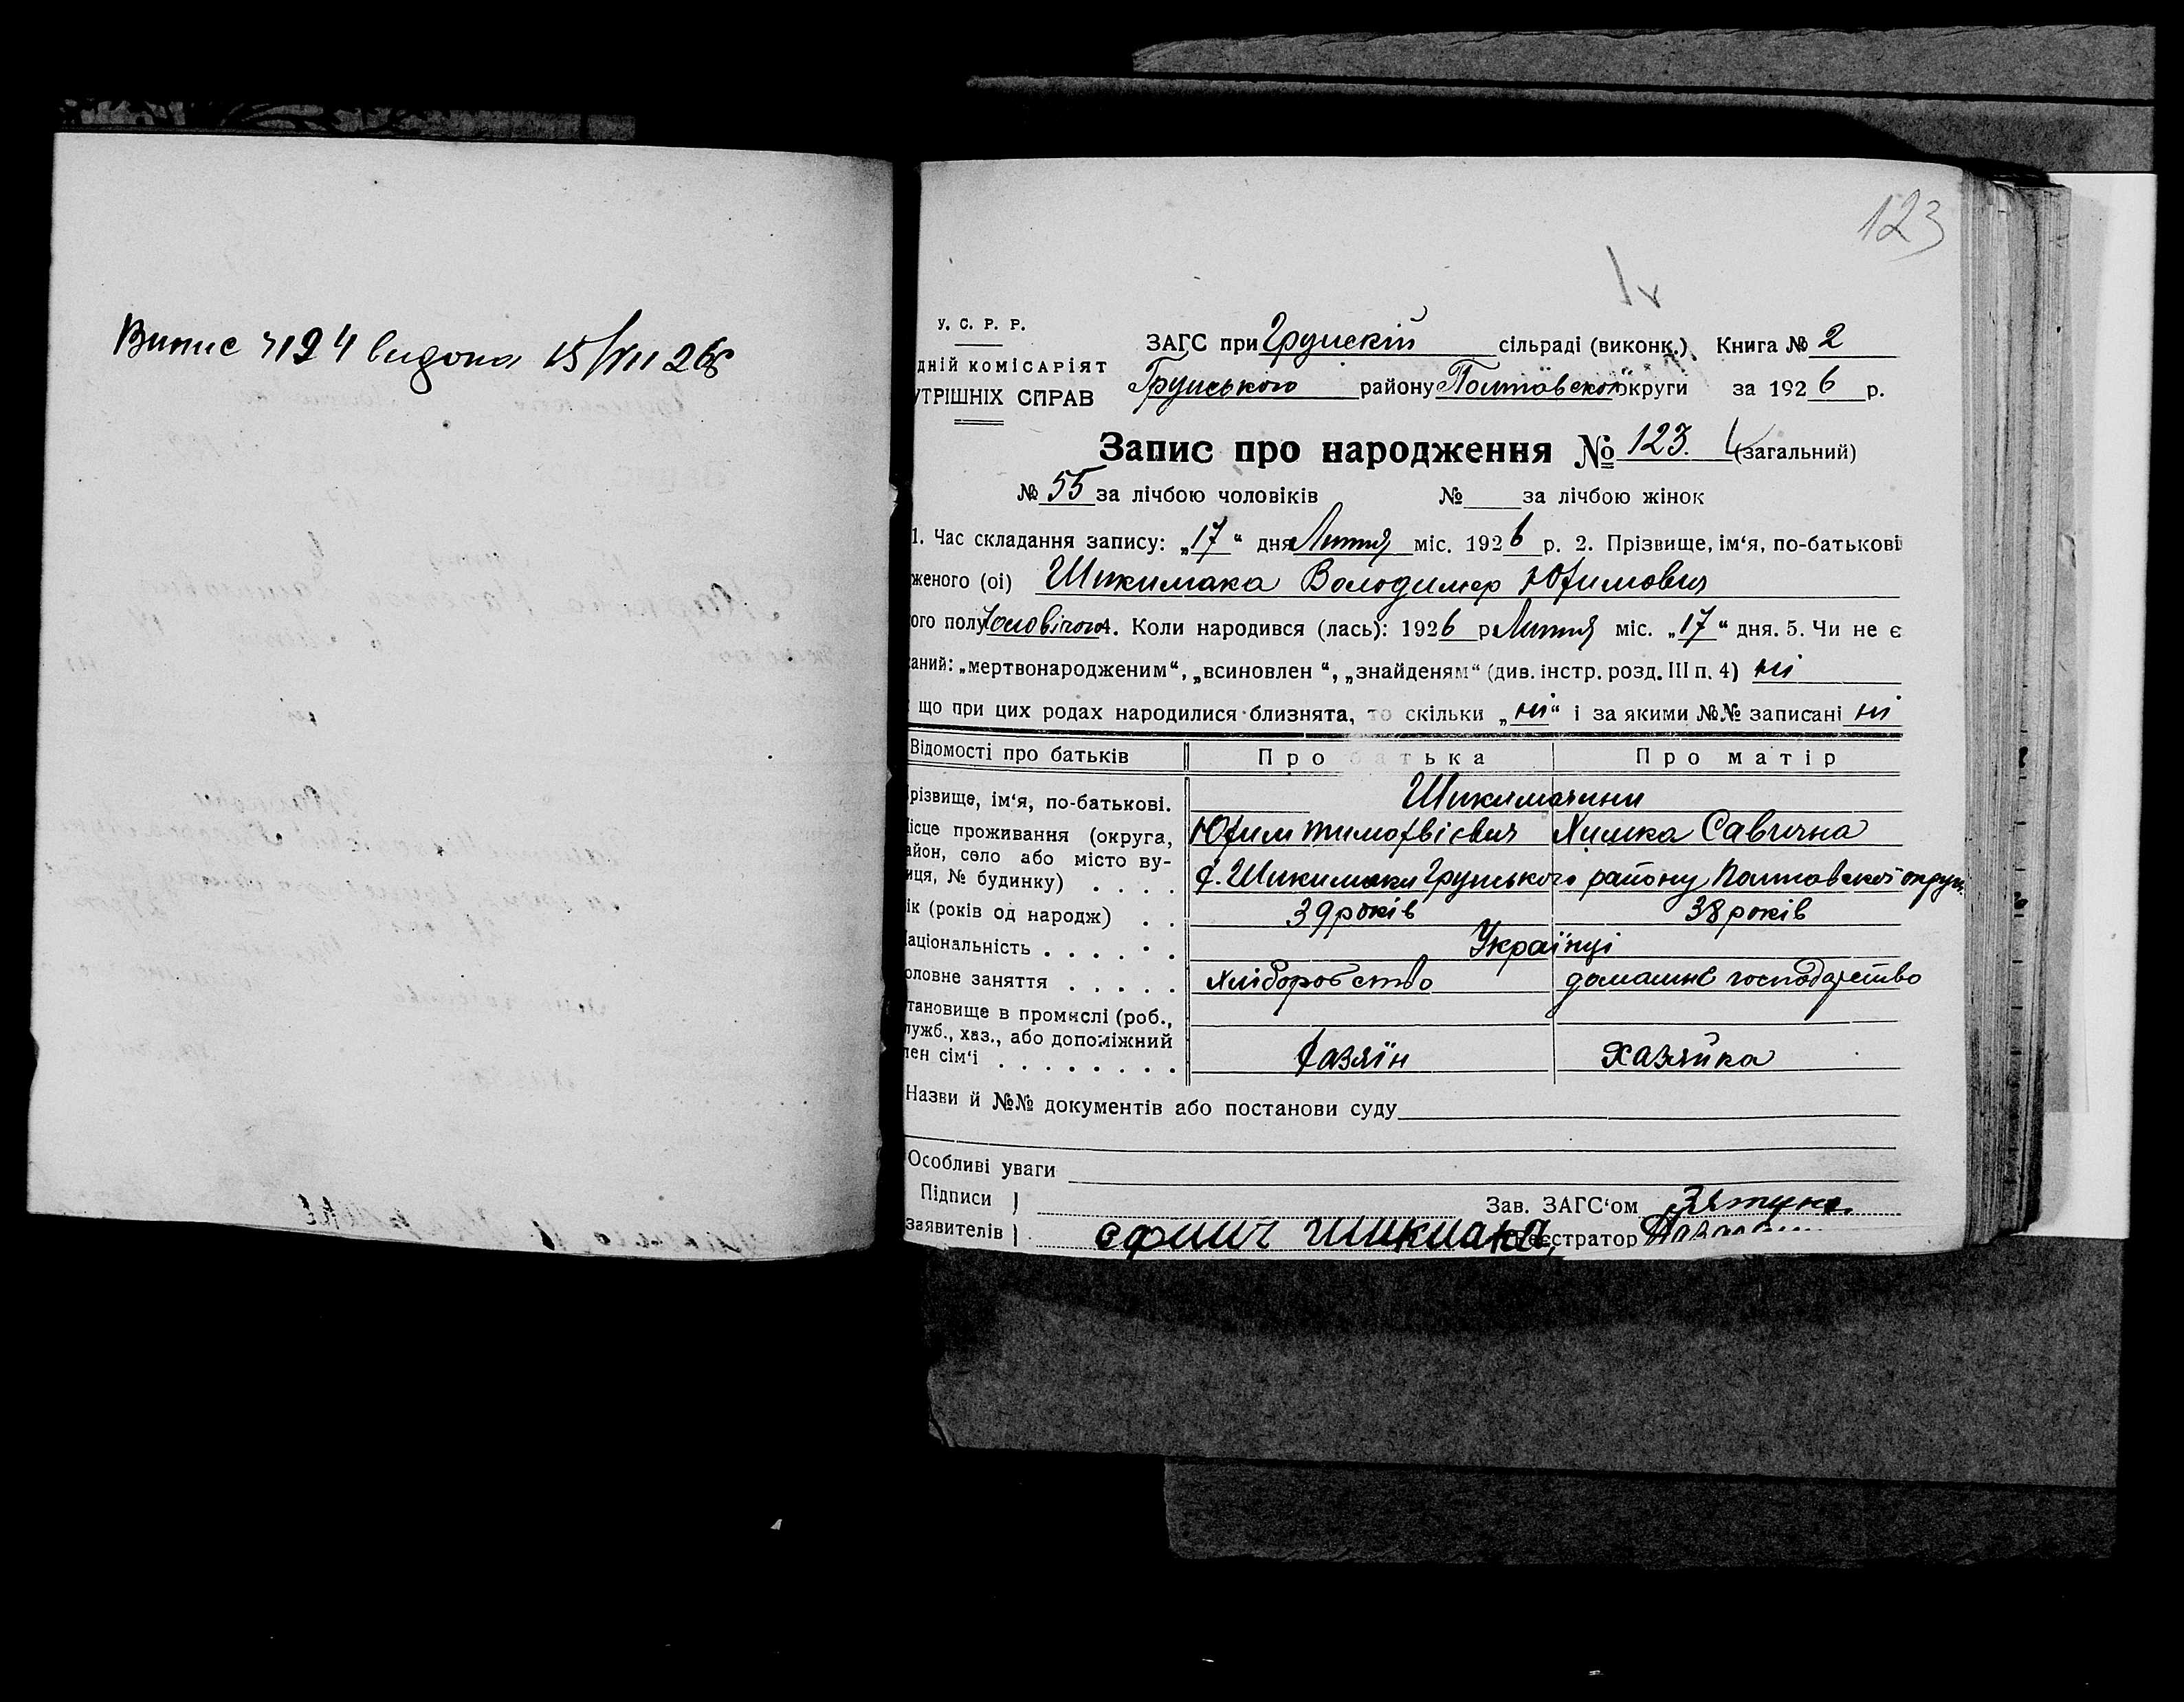 Випис 4124 видона 15/VII 26
123
У. С. Р. Р.
ДНІЙ КОМІСАРІЯТ
УТРІШНІХ СПРАВ
ЗАГС при Грунскій сільраді (виконк.) Книга № 2
Грунського району Полтавської округи за 1926 р.
Запис про народження № 123. (загальний)
№ 55 за лічбою чоловіків № за лічбою жінок
1. Час складання запису: „17“ дня Липня міс. 1926 р. 2. Прізвище, ім‘я, по-батькові
женого (ої) Шикимака Володимер Юфимович
ого полу Чоловічого 4. Коли народився (лась): 1926 р Липня міс. „17“ дня. 5. Чи не є
аний: „мертвонародженим“, „всиновлен “, „знайденям“ (див. інстр. розд. III п. 4) ні
що при цих родах народилися близнята, то скільки „ні“ і за якими №№ записані ні
Відомості про батьків Про батька Про матір
різвище, ім‘я, по-батькові. Шикимачини
Юфим тимофвієвич Химка Савична
ісце проживання (округа,
айон, село або місто ву-
иця, № будинку) . . . . х. Шикимаки Грунського району Полтавскої округ.
ік (років од народж) . . 39 років 38 років
аціональність . . . . . . Українці
оловне заняття . . . . . хліборобство домашнє господарство
тановище в промислі (роб.,
лужб., хаз., або допоміжний
лен сім‘ї . . . . . . . . хазяїн хазяйка
Назви й №№ документів або постанови суду
Особливі уваги
Підписи Зав. ЗАГС‘ом
заявителів Реєстратор